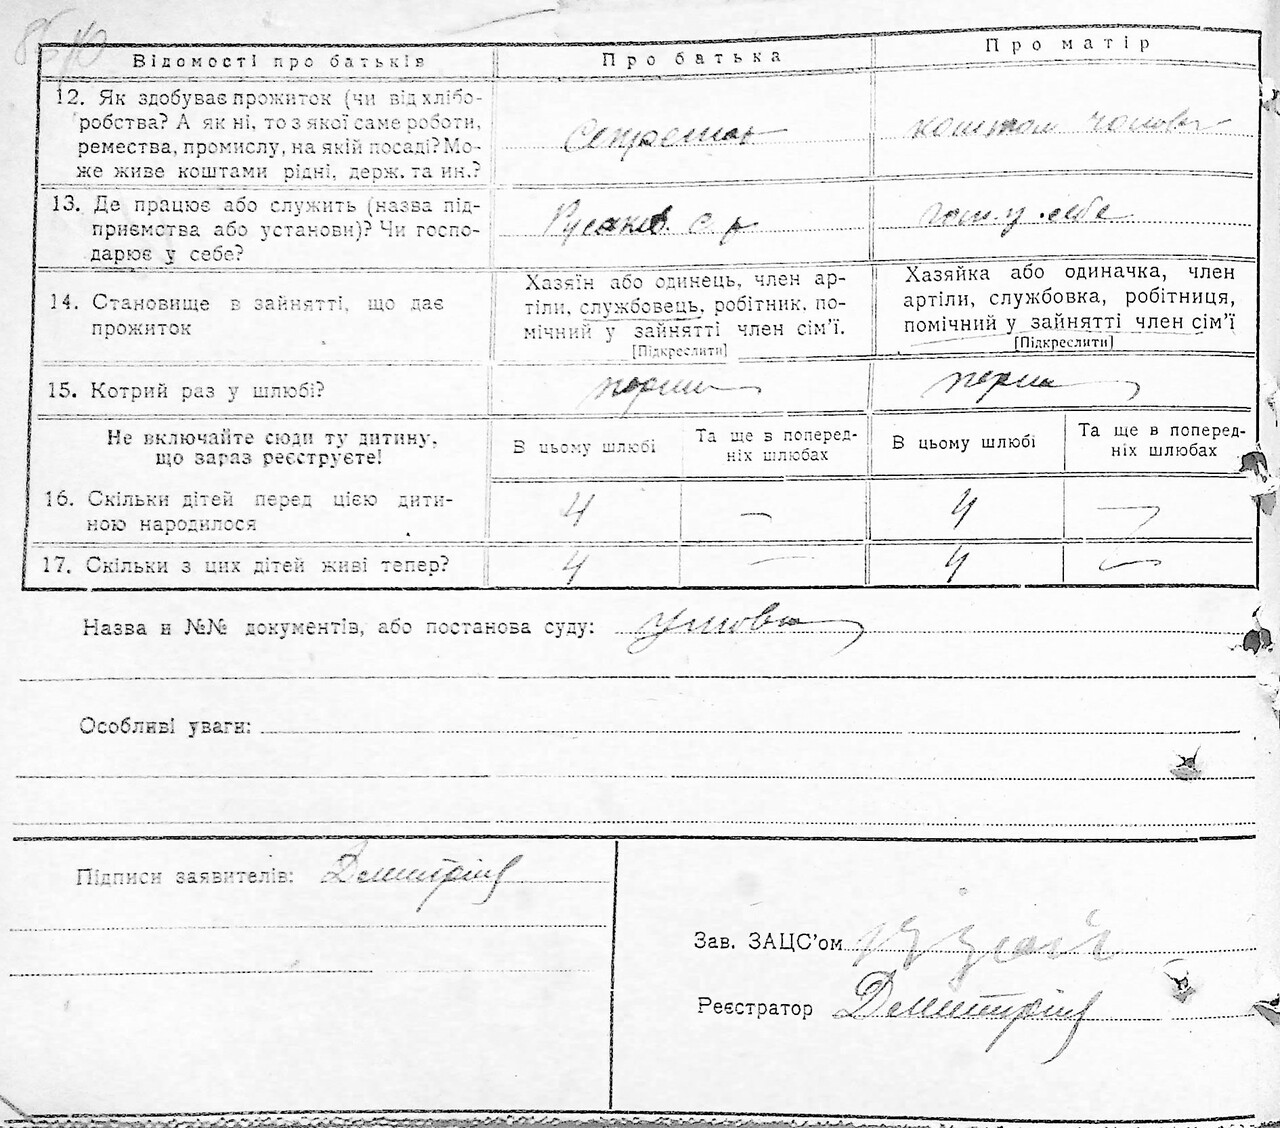 Відомості про батьків
Про батька
Про матір
12. Як здобуває прожиток (чи від хлібо-
робства? А як ні, то з якої саме роботи,
ремества, промислу, на якій посаді? Мо-
же живе коштами рідні, держ. та ин.?
Секретар
коштом чолові
13. Де працює або служить (назва під-
приємства або установи)? Чи госпо-
дарює у себе?
Русанів. с р
госп. у себе
14. Становище в зайнятті, що дає
прожиток
Хазяїн або одинець, член ар-
тіли, службовець, робітник, по-
мічний у зайнятті член сім'ї.
[Підкреслити]
Хазяйка або одиначка, член
артіли, службовка, робітниця,
помічний у зайнятті член сім'ї
[Підкреслити]
15. Котрий раз у шлюбі?
перший
перш
Не включайте сюди ту дитину,
що зараз реєструєте!
В цьому шлюбі
Та ще в поперед-
ніх шлюбах
В цьому шлюбі
Та ще в поперед-
ніх шлюбах
16. Скільки дітей перед цією дити-
ною народилося
4
—
4
—
17. Скільки з цих дітей живі тепер?
4
—
4
—
Назва и №№ документів, або постанова суду:
Особливі уваги:
Підписи заявителів: Дмитрієв
Зав. ЗАЦС'ом
Реєстратор Дмитрієв